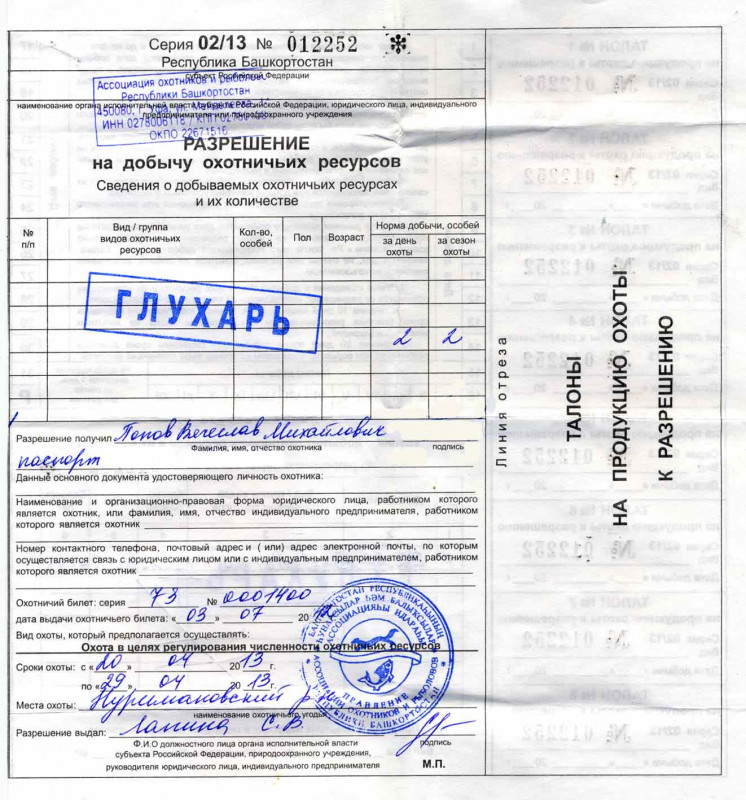 Серия 02/13 № 012252
Республика Башкортостан
субъект Российской Федерации
Ассоциация охотников и рыболовов
Республики Башкортостан
450080, г. Уфа, ул.
ИНН 0278006118 / КПП
ОКПО 22671516
наименование органа исполнительной власти субъекта Российской Федерации, юридического лица, индивидуального
предпринимателя или природоохранного учреждения
РАЗРЕШЕНИЕ
на добычу охотничьих ресурсов
Сведения о добываемых охотничьих ресурсах
и их количестве
№ п/п
Вид / группа видов охотничьих ресурсов
Кол-во, особей
Пол
Возраст
Норма добычи, особей
за день охоты
за сезон охоты
ГЛУХАРЬ
2 2
Разрешение получил Попов Вячеслав Михайлович
Фамилия, имя, отчество охотника подпись
паспорт
Данные основного документа удостоверяющего личность охотника:
Наименование и организационно-правовая форма юридического лица, работником которого
является охотник, или фамилия, имя, отчество индивидуального предпринимателя, работником
которого является охотник
Номер контактного телефона, почтовый адрес и ( или) адрес электронной почты, по которым
осуществляется связь с юридическим лицом или с индивидуальным предпринимателем, работником
которого является охотник
Охотничий билет: серия 73 № 0001400
дата выдачи охотничьего билета: « 03 » 07 20
Вид охоты, который предполагается осуществлять:
Охота в целях регулирования численности охотничьих ресурсов
Сроки охоты: с « 20 » 04 2013 г.
по « 29 » 04 2013 г.
Места охоты: Нуримановский
наименование охотничьего угодья
Разрешение выдал: Лапина С. В.
Ф.И.О должностного лица органа исполнительной власти подпись
субъекта Российской Федерации, природоохранного учреждения,
руководителя юридического лица, индивидуального предпринимателя М.П.
ПРАВЛЕНИЕ
АССОЦИАЦИИ ОХОТНИКОВ И РЫБОЛОВОВ
РЕСПУБЛИКИ БАШКОРТОСТАН
Линия отреза
ТАЛОНЫ
НА ПРОДУКЦИЮ ОХОТЫ
К РАЗРЕШЕНИЮ